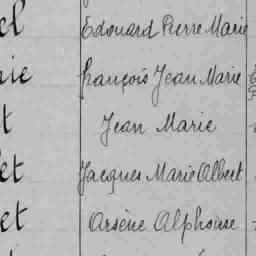 el Edouard Pierre Marie
rie François Jean Marie
t Jean Marie
et Jacques Marie Albert
et Arsène Alphonse